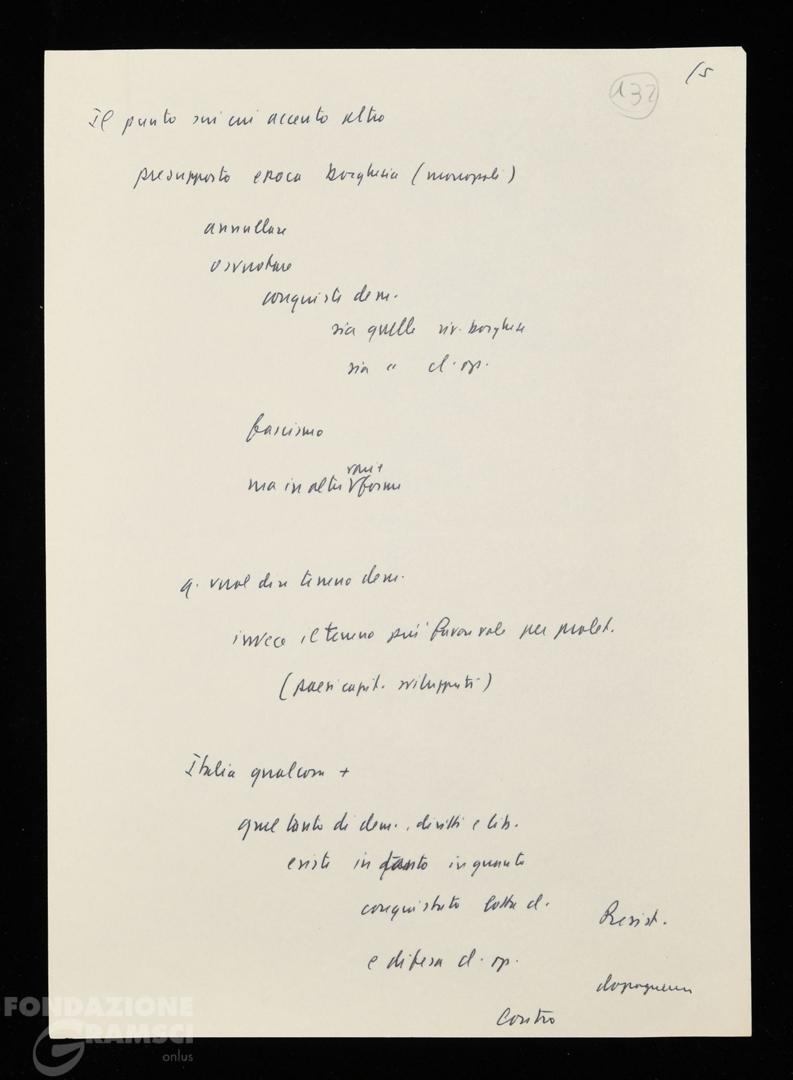 15
132
Il punto su cui accento altro
presupposto epoca borghesia (monopoli)
annullare
svuotare
conquiste dem.
sia quelle riv. borghese
sia " cl. op.
fascismo
varie
ma in altre forme
q. vuol dire terreno dem.
invece il terreno più favorevole per prolet.
(paesi capit. sviluppati)
Italia qualcosa +
quel tanto di dem., diritti e lib.
esiste in tanto in quanto
conquistato lotta cl.
Resist.
e difesa cl. op.
dopoguerra
contro
FONDAZIONE
GRAMSCI
onlus